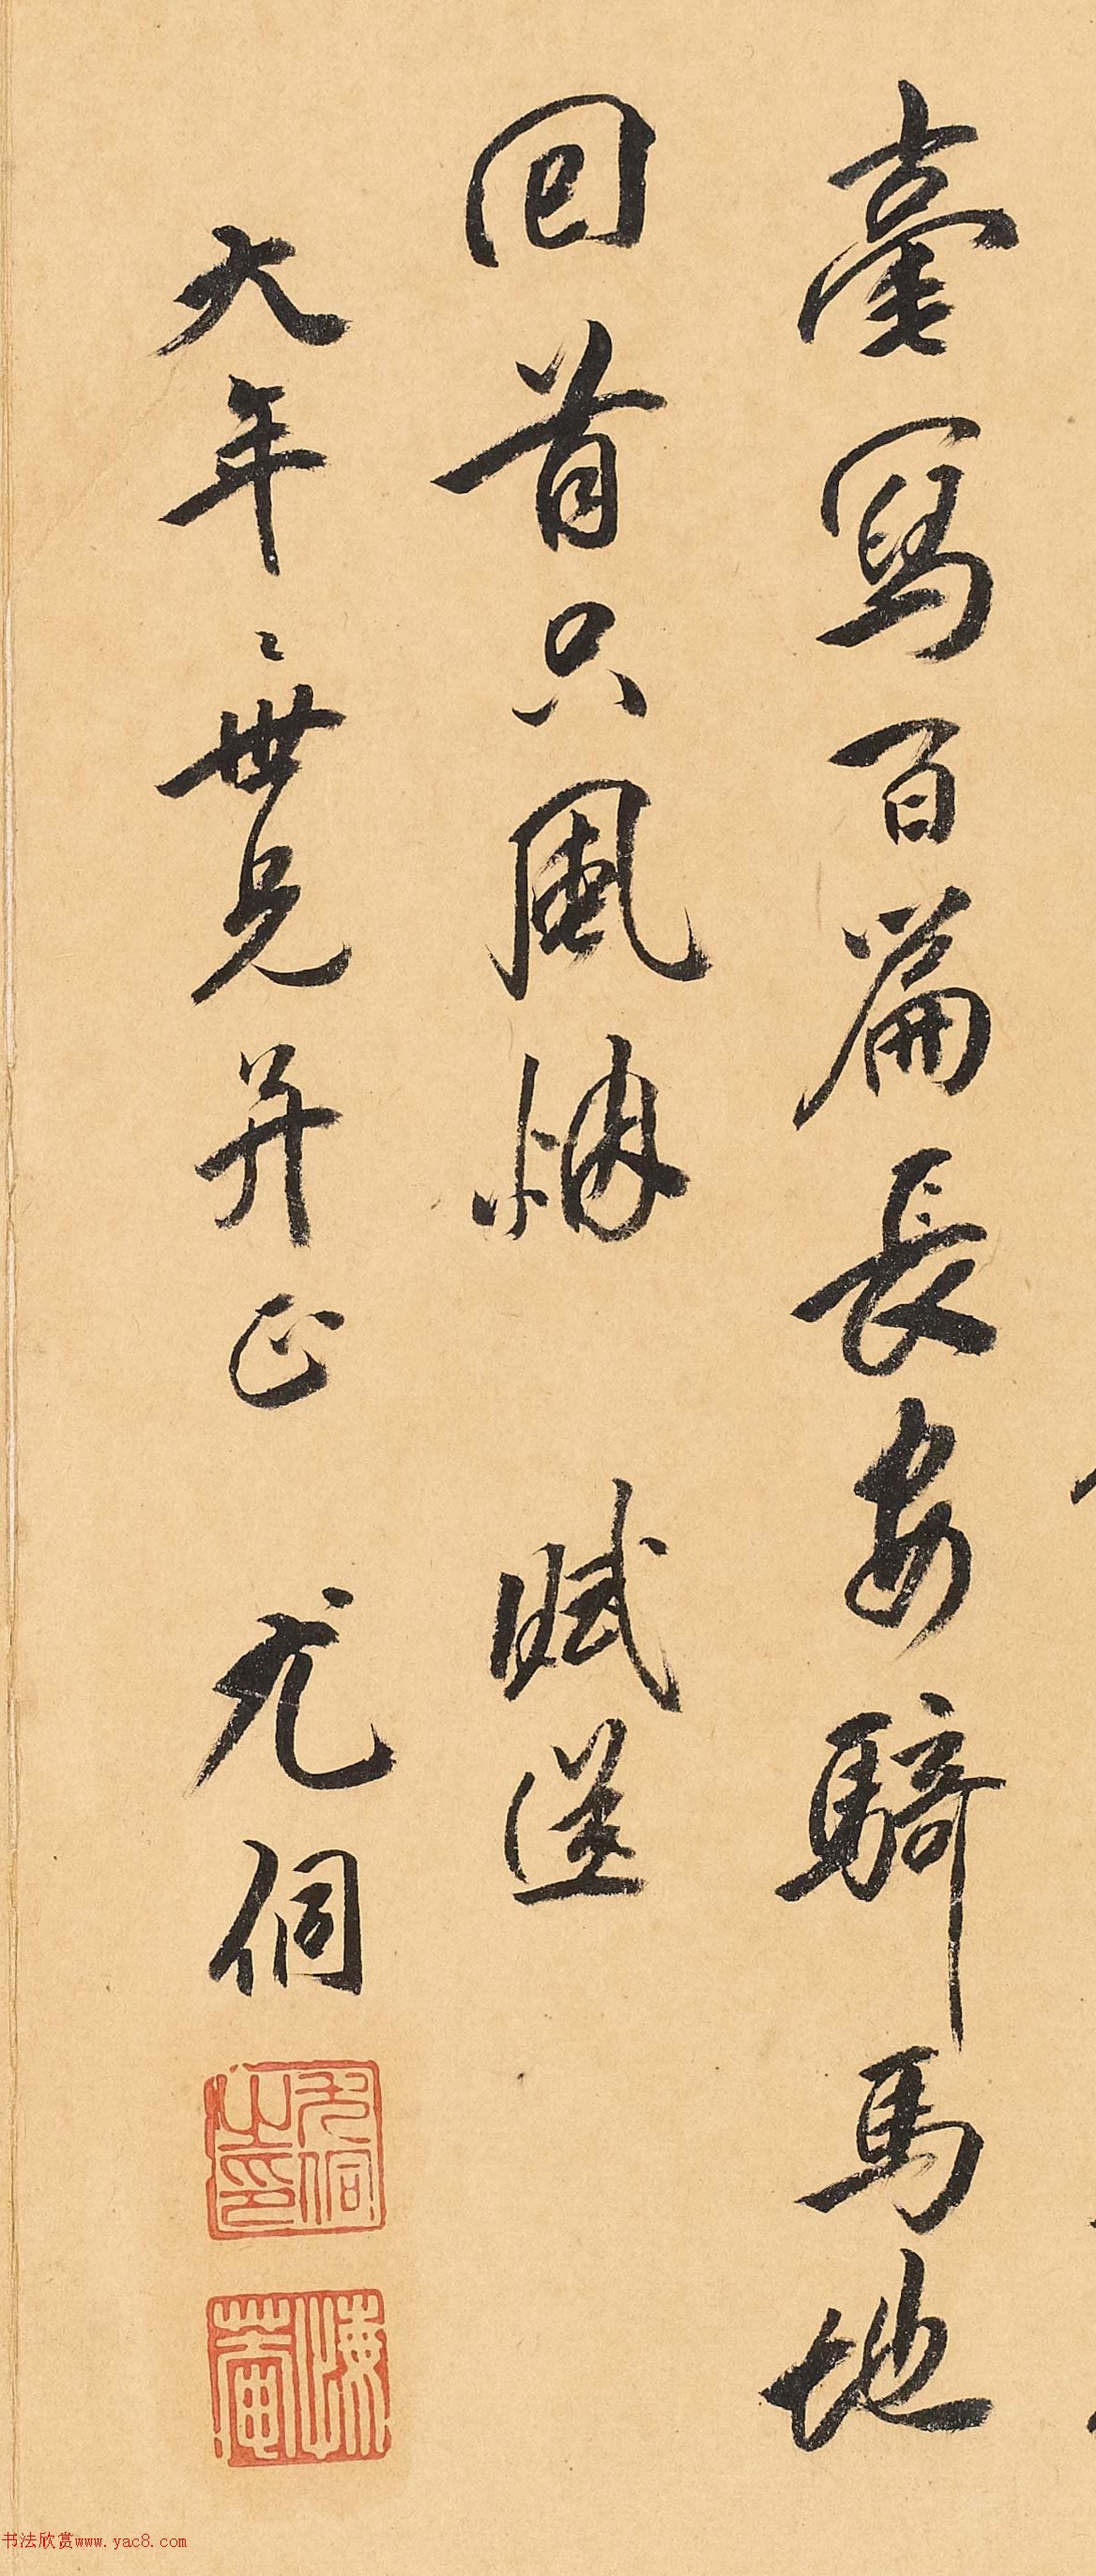 臺寫百篇長安騎馬地
回首只風烟 賦送
大年年世兄并正 尤侗
尤侗之印
悔菴
书法欣赏www.yac8.com